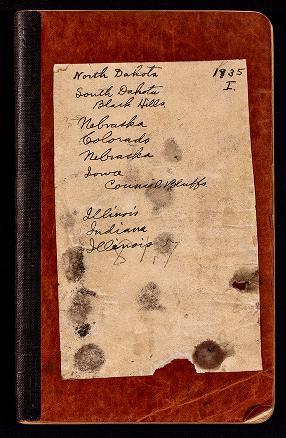 North Dakota 1935
South Dakota I.
Black Hills
Nebraska
Colorado
Nebraska
Iowa
Council Bluffs
Illinois
Indiana
Illinois